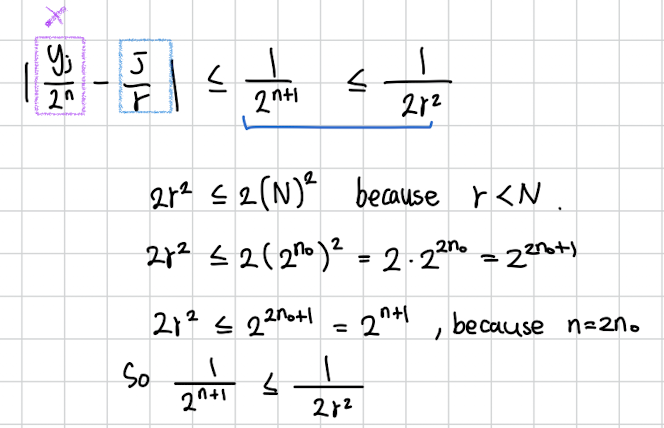 x
| yⱼ/2ⁿ - j/r | ≤ 1/2ⁿ⁺¹ ≤ 1/2r²
2r² ≤ 2(N)² because r < N.
2r² ≤ 2(2^{n₀})² = 2·2^{2n₀} = 2^{2n₀+1}
2r² ≤ 2^{2n₀+1} = 2^{n+1}, because n=2n₀
So 1/2ⁿ⁺¹ ≤ 1/2r²